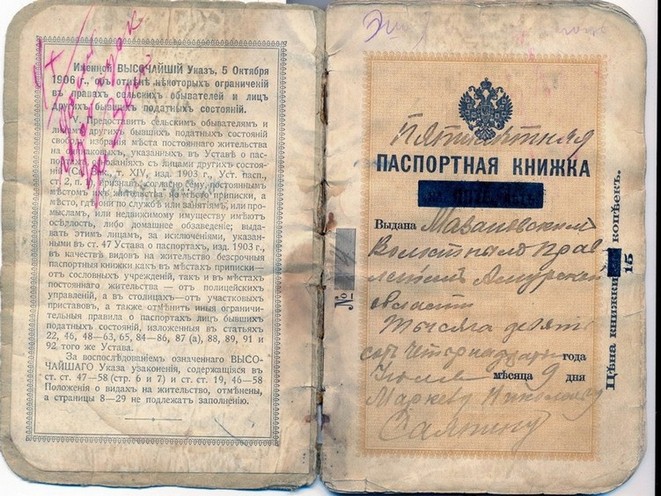 Именной ВЫСОЧАЙШІЙ Указъ, 5 Октября
1906 г., объ отмѣнѣ нѣкоторыхъ ограниченій
въ правахъ сельскихъ обывателей и лицъ
другихъ бывшихъ податныхъ состояній.
V. Предоставить сельскимъ обывателямъ и
лицамъ другихъ бывшихъ податныхъ состояній
свободу избранія мѣста постояннаго жительства
на основаніяхъ, указанныхъ въ Уставѣ о пас-
портахъ
т. XIV, изд. 1903 г., Уст. пасп.,
ст. 2, п.
мѣстомъ ихъ жительства не мѣсто приписки, а
мѣсто, гдѣ они по службѣ или занятіямъ, или про-
мысламъ, или недвижимому имуществу имѣютъ
осѣдлость, либо домашнее обзаведеніе; выда-
вать этимъ лицамъ, за исключеніями, указан-
ными въ ст. 47 Устава о паспортахъ, изд. 1903 г.,
въ качествѣ видовъ на жительство безсрочныя
паспортныя книжки какъ въ мѣстахъ приписки—
отъ сословныхъ учрежденій, такъ и въ мѣстахъ
постояннаго жительства — отъ полицейскихъ
управленій, а въ столицахъ—отъ участковыхъ
приставовъ, а также отмѣнить иныя ограничитель-
ныя правила о паспортахъ лицъ бывшихъ
податныхъ состояній, изложенныя въ статьяхъ
22, 46, 48—63, 65, 84—86, 87 (а), 88, 89, 91 и
92 того же Устава.
За воспослѣдованіемъ означеннаго ВЫСО-
ЧАЙШАГО Указа узаконенія, содержащіяся въ
ст. ст. 47—58 (стр. 6 и 7) и ст. ст. 19, 46—58
Положенія о видахъ на жительство, отмѣнены,
а страницы 8—29 не подлежатъ заполненію.
Пятилѣтная
ПАСПОРТНАЯ КНИЖКА
Выдана Мазановскимъ
Волостнымъ Прав
леніемъ Амурской
области
Тысяча девять
сотъ четырнадцат года
Іюля мѣсяца 9 дня
Маркелу Николаеву
№
Цѣна книжки 15 копѣекъ.